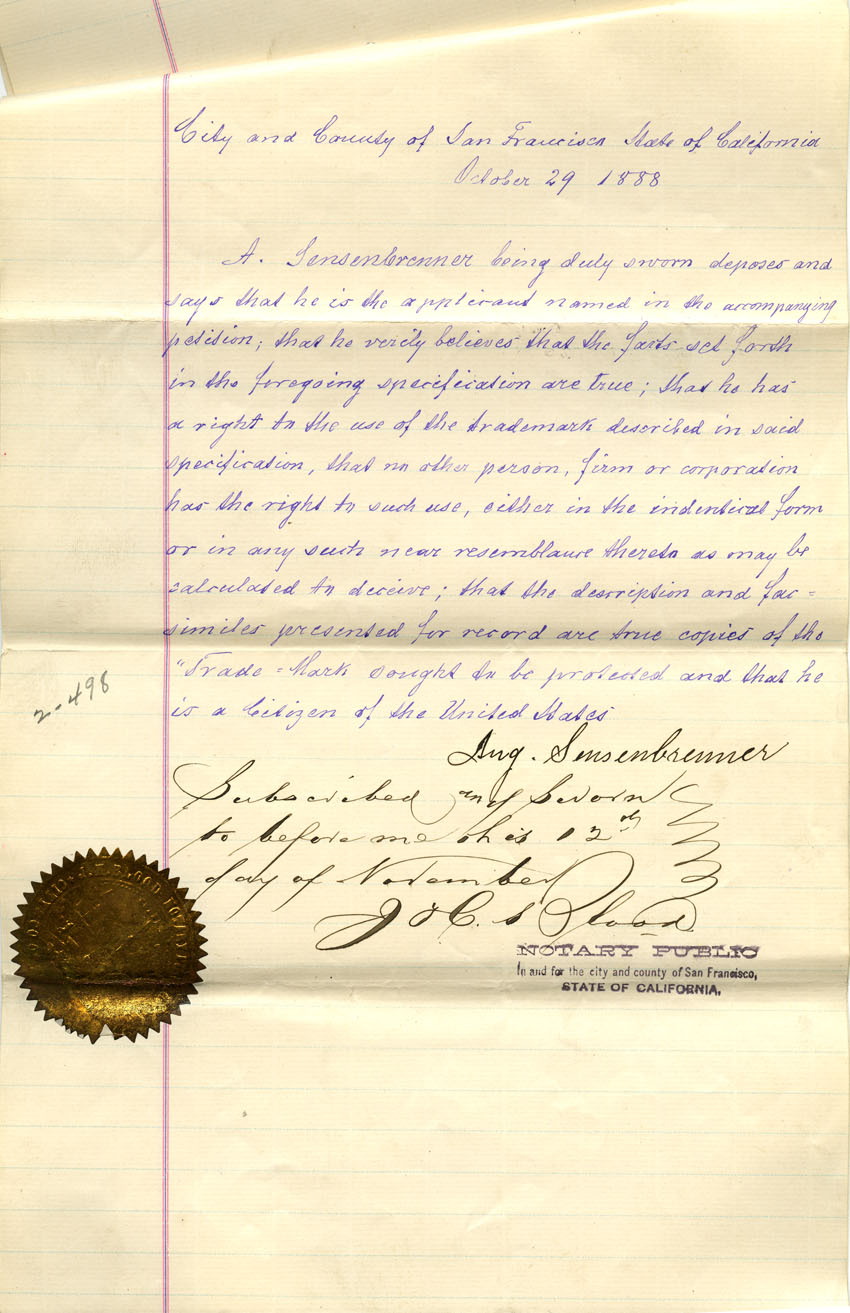 City and County of San Francisco State of California
October 29 1888
A. Sensenbrenner being duly sworn deposes and
says that he is the applicant named in the accompanying
petition; that he verily believes that the facts set forth
in the foregoing specification are true; that he has
a right to the use of the trademark described in said
specification, that no other person, firm or corporation
has the right to such use, either in the indentical form
or in any such near resemblance thereto as may be
calculated to deceive; that the description and fac=
similes presented for record are true copies of the
"Trade=Mark sought to be protected and that he
is a Citizen of the United States
2-498
Aug. Sensenbrenner
Subscribed and Sworn
to before me this 12th
day of November
NOTARY PUBLIC
In and for the city and county of San Francisco,
STATE OF CALIFORNIA.